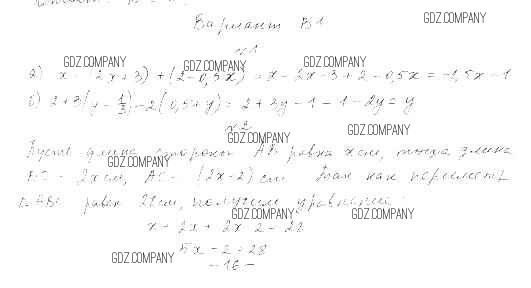 Вариант В1
№1
а) x - (2x + 3) + (2 - 0,5x) = x - 2x - 3 + 2 - 0,5x = -1,5x - 1
б) 2 + 3(y - 1/3) - 2(0,5 + y) = 2 + 3y - 1 - 1 - 2y = y
№2
Пусть длина стороны AB равна x см, тогда длина
BC - 2x см, AC - (2x - 2) см. Так как периметр
ABC равен 28 см, получим уравнение:
x + 2x + 2x - 2 = 28
5x - 2 = 28
GDZ.COMPANY
GDZ.COMPANY
GDZ.COMPANY
GDZ.COMPANY
GDZ.COMPANY
GDZ.COMPANY
GDZ.COMPANY
GDZ.COMPANY
GDZ.COMPANY
GDZ.COMPANY